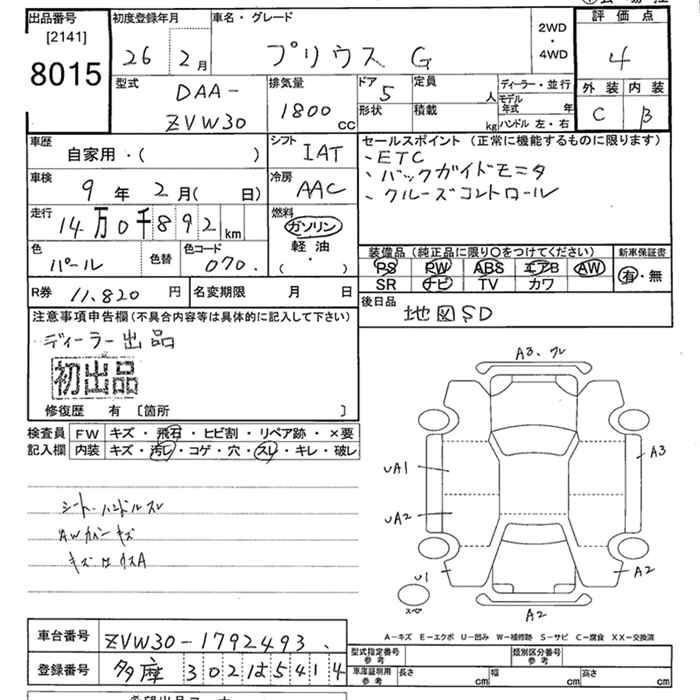 出品番号 初度登録年月 車名・グレード 評価点
[2141] 2WD
8015 26 2月 プリウス G ・ 4
4WD
型式 排気量 ドア 定員 ディーラー・並行 外装 内装
DAA- 5 人 モデル年式 年 C B
ZVW30 1800cc 形状 積載 kg ハンドル 左・右
車歴 シフト セールスポイント(正常に機能するものに限ります)
自家用・( ) IAT 、ETC
車検 冷房 、バックガイドモニタ
9年2月(日) AAC 、クルーズコントロール
走行 燃料
14万0千892km ガソリン
色 色替 色コード 軽油 装備品(純正品に限り○をつけてください) 新車保証書
パール 070. ( ・ ) PS PW ABS エアB AW 有・無
SR ナビ TV カワ
R券 11,820円 名変期限 月 日 後日品 地図SD
注意事項申告欄(不具合内容等は具体的に記入して下さい)
ディーラー出品
初出品
修復歴 有 [箇所 ]
検査員 FW キズ・飛石・ヒビ割・リペア跡・×要
記入欄 内装 キズ・汚レ・コゲ・穴・スレ・キレ・破レ
シート・ハンドルスレ
AWカバーキズ
A3.
A3
UA1
UA2
U1
A2
A2
A-キズ E-エクボ U-凹み W-補修跡 S-サビ C-腐食 XX-交換済
車台番号 ZVW30-1792493.
登録番号 多摩 302は5414
型式指定番号 参考 類別区分番号 参考
車庫証明用 参考 長さ cm 幅 cm 高さ cm